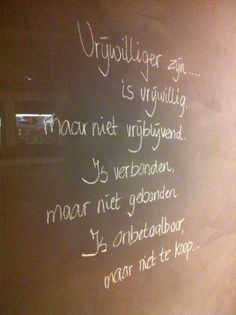 Vrijwilliger zijn.....
is vrijwillig,
maar niet vrijblijvend.
Is verbonden,
maar niet gebonden.
Is onbetaalbaar,
maar niet te koop...